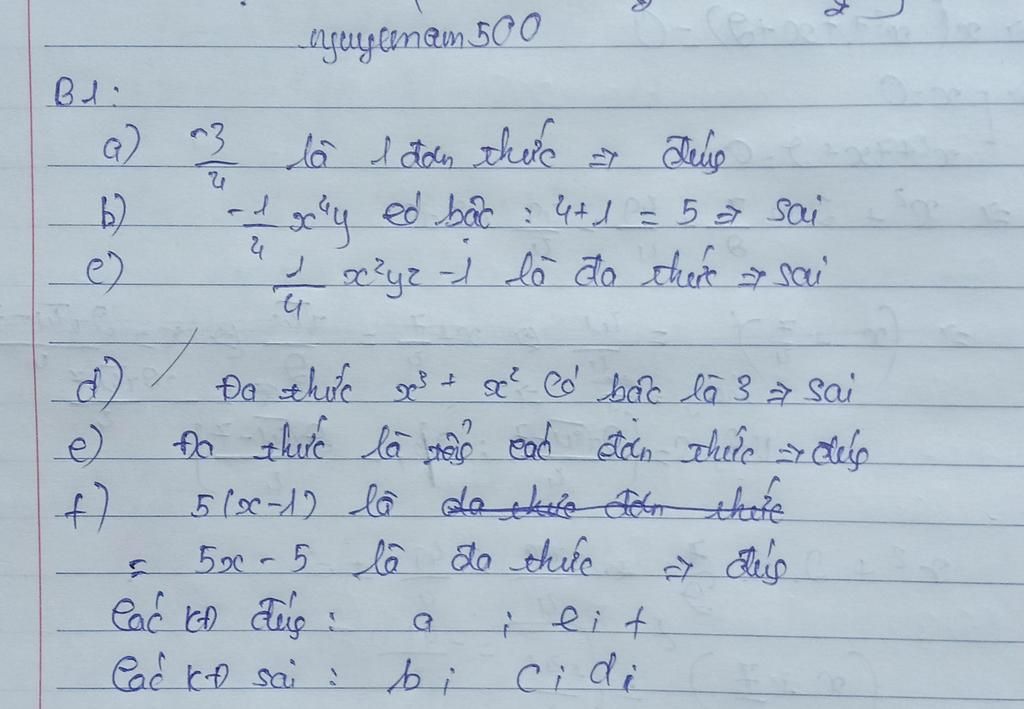 nguyenam500
B1:
a) -3/4 là 1 đơn thức => đúng
b) -1/4 x⁴y có bậc : 4+1 = 5 => sai
c) 1/4 x²yz -1 là đa thức => sai
d) Đa thức x³ + x² có bậc là 3 => sai
e) Đa thức là tổng các đơn thức => đúng
f) 5(x-1) là đa thức đơn thức
= 5x - 5 là đa thức => đúng
Các KĐ đúng : a ; e ; f
Các KĐ sai : b ; c ; d ;